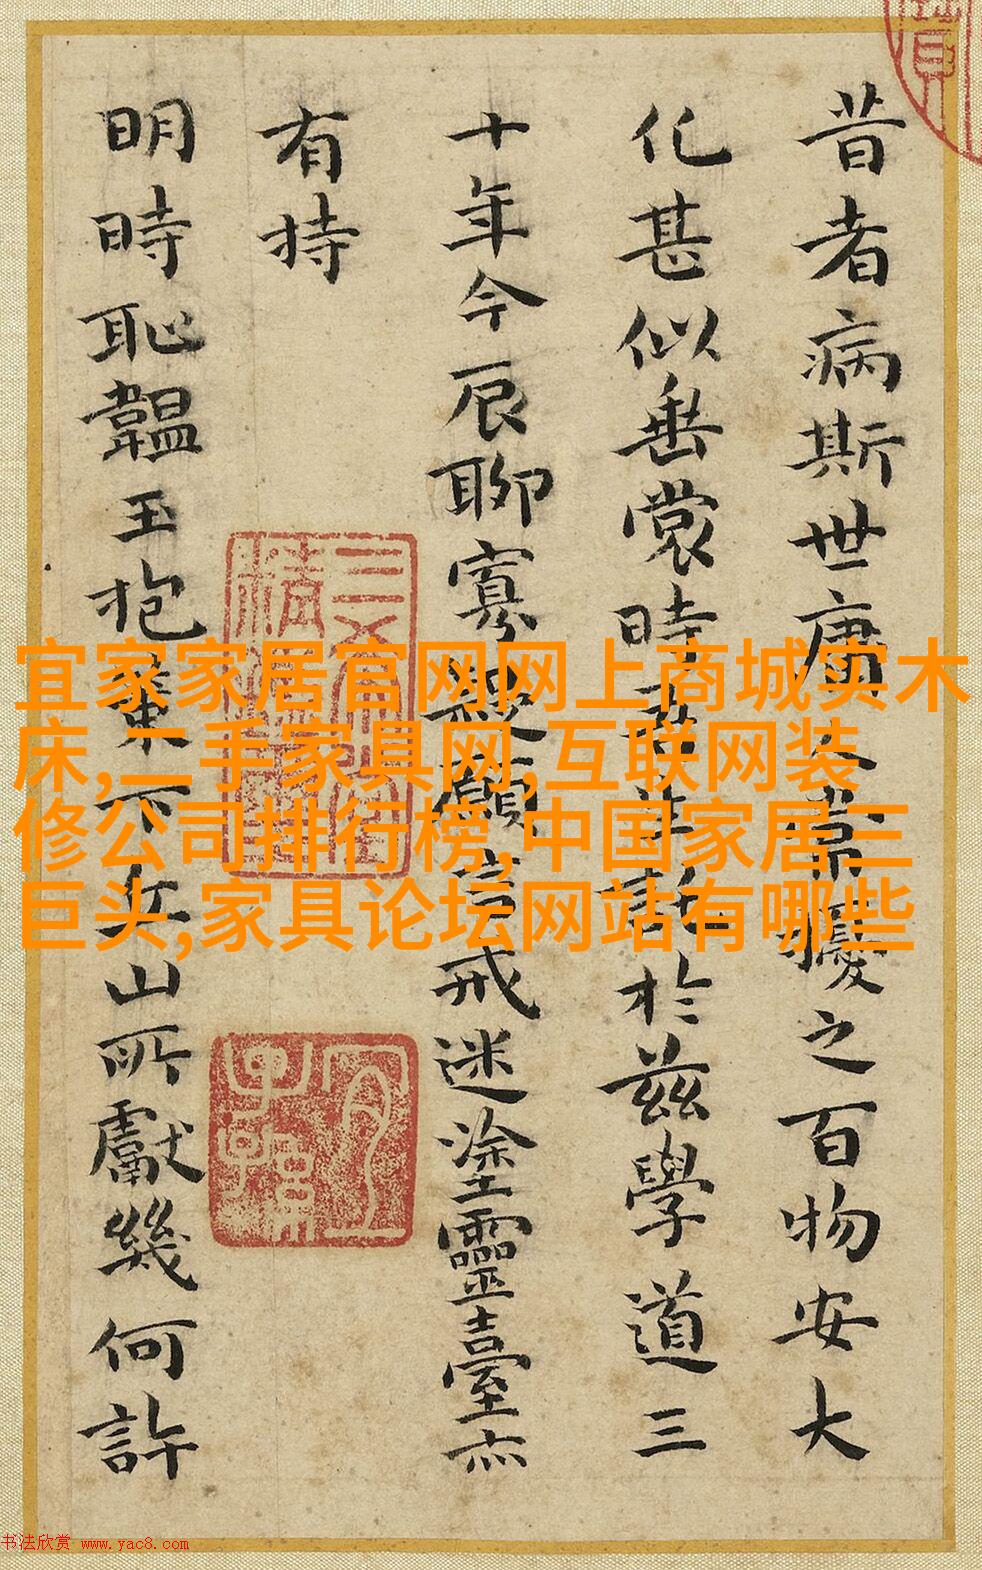 昔者病斯世庸人常擾之百物安大
化甚似垂裳時吾生託於茲學道三
十年今辰聊寡願言戒迷塗靈臺亦
有持
明時恥韞玉抱下山所獻幾何許
宜家家居官网网上商城实木
床,二手家具网,互联网装
修公司排行榜,中国家居三
巨头,家具论坛网站有哪些
书法欣赏 www.yac8.com